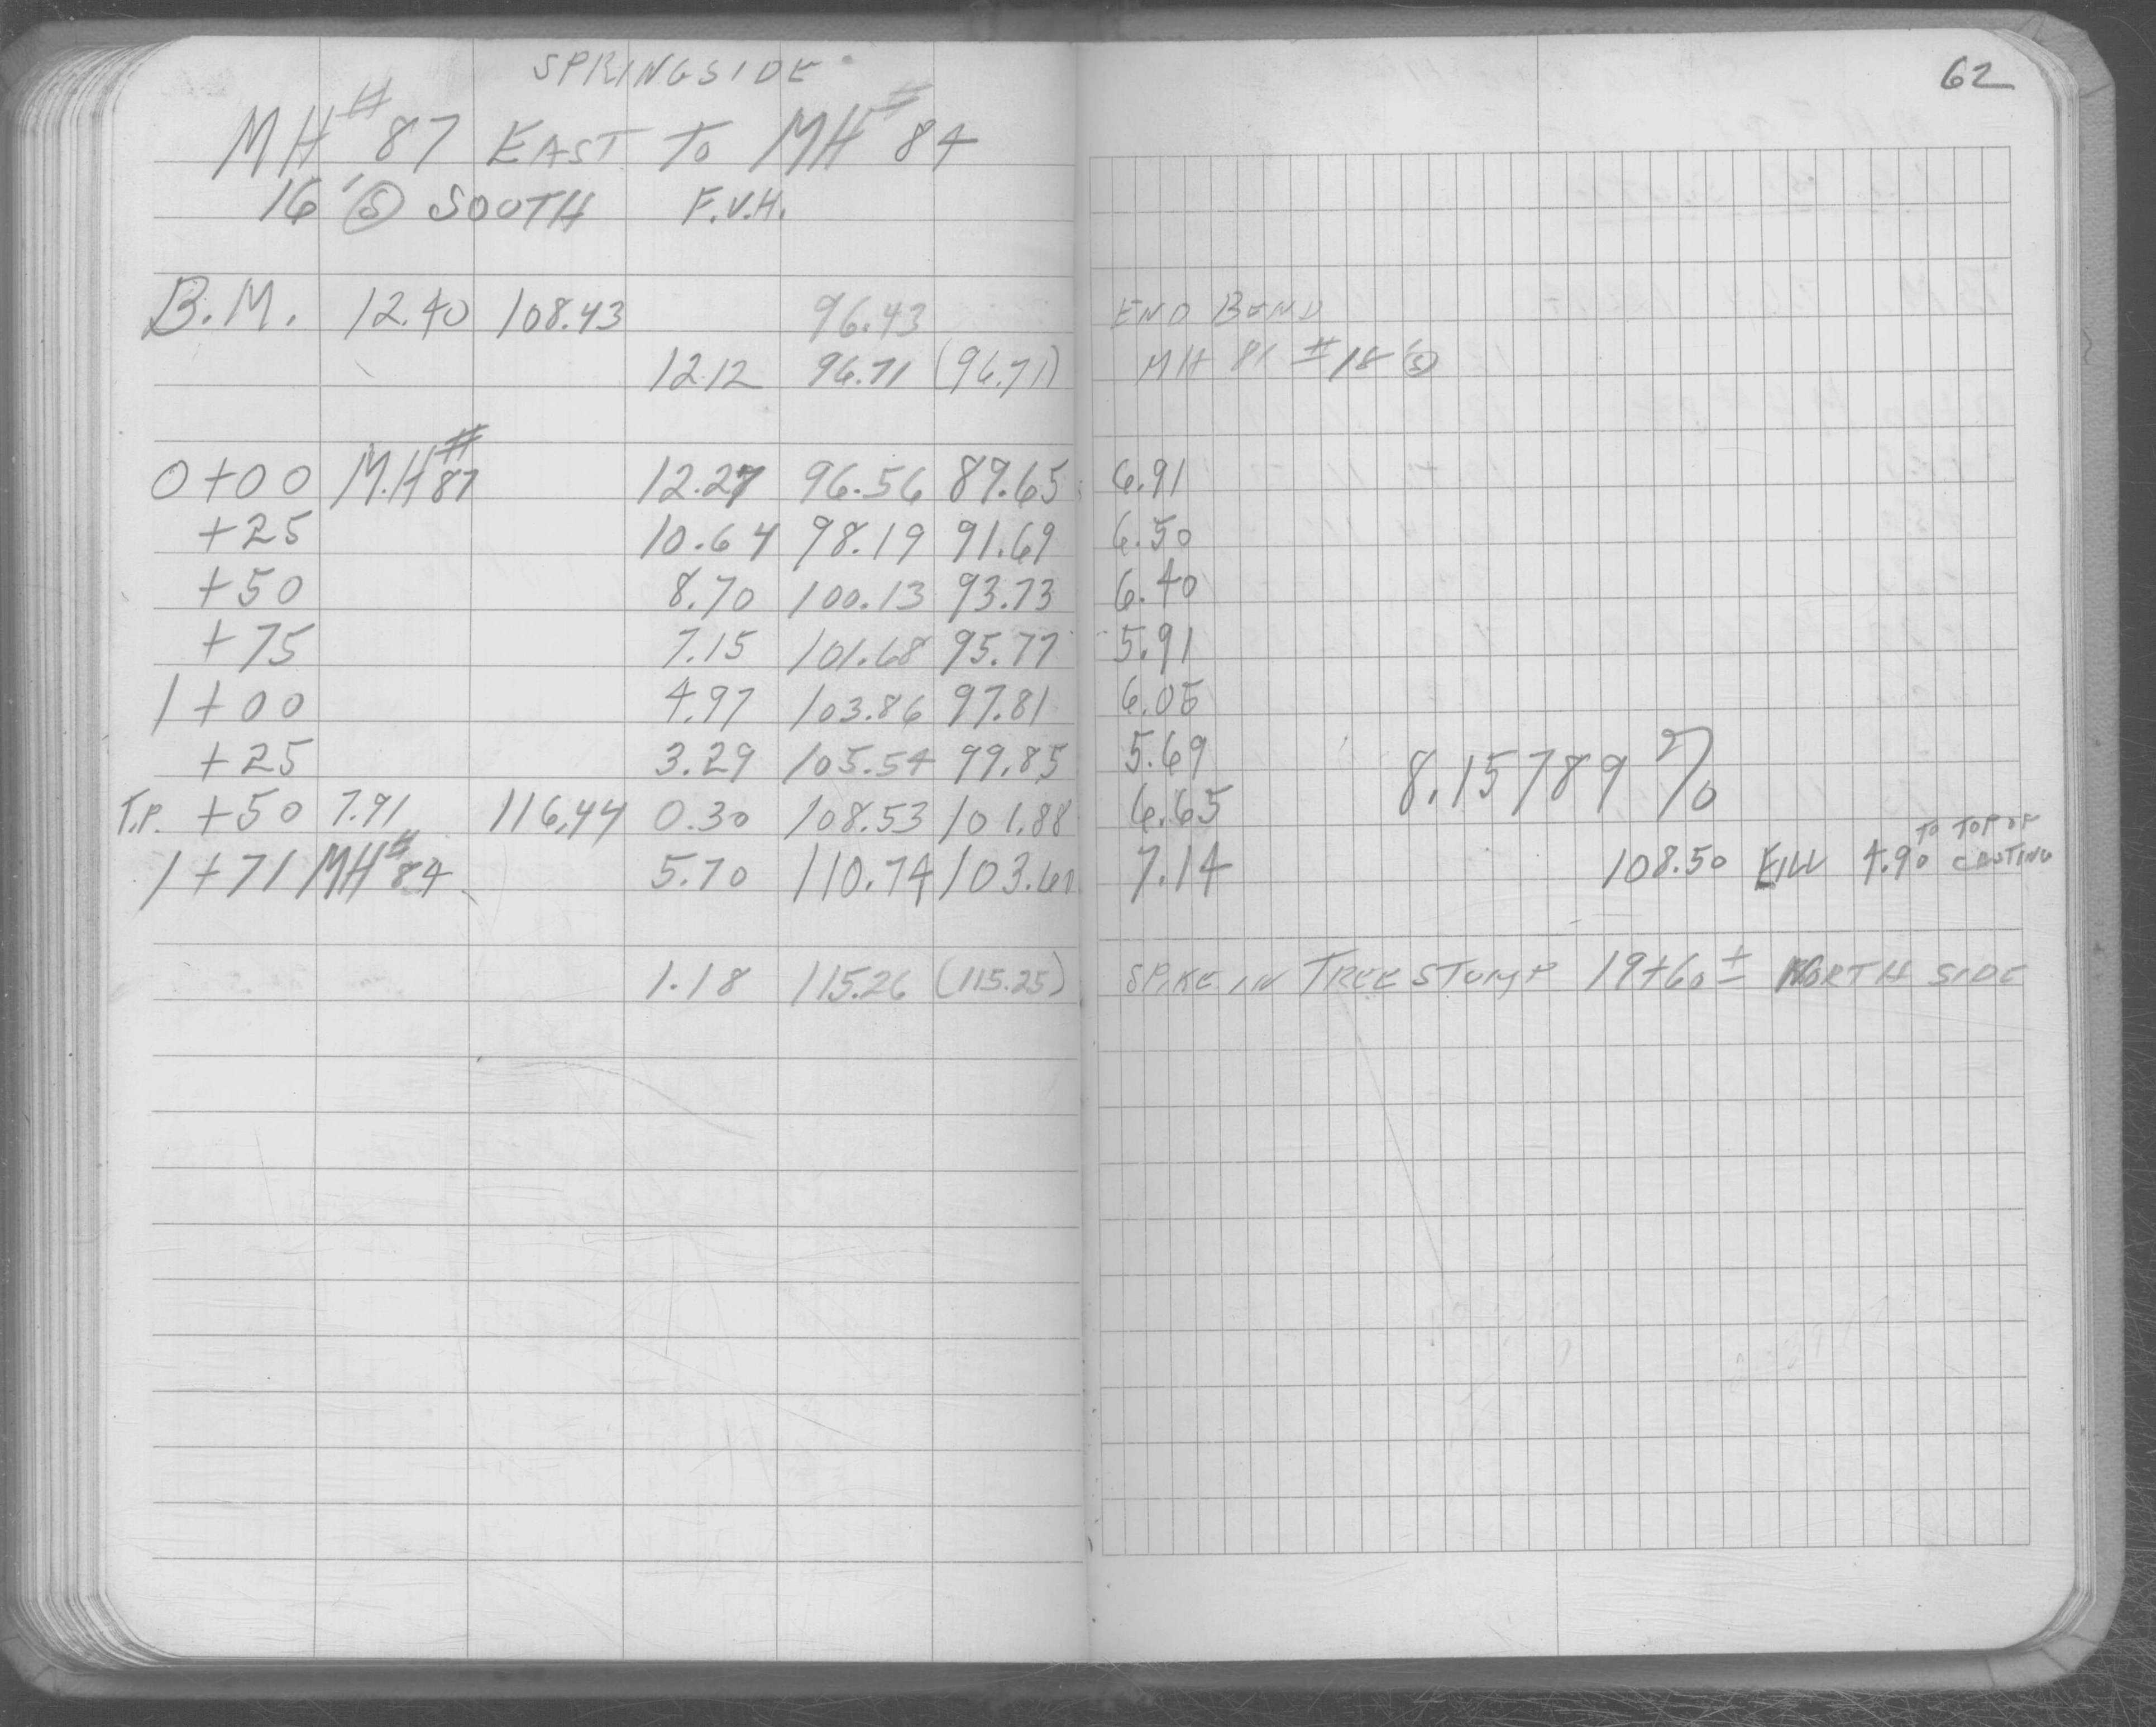 62
SPRINGSIDE
MH# 87 EAST TO MH# 84
16' Ⓢ SOUTH F.V.H.
B.M. 12.40 108.43 96.43 END BEND
12.12 96.71 (96.71) MH 81 # 18' Ⓢ
0+00 M.H# 87 12.27 96.56 89.65 6.91
+25 10.64 98.19 91.69 6.50
+50 8.70 100.13 93.73 6.40
+75 7.15 101.68 95.77 5.91
1+00 4.97 103.86 97.81 6.05
+25 3.29 105.54 99.85 5.69 8.15789 %
T.P. +50 7.91 116.44 0.30 108.53 101.88 6.65
TO TOP OF
1+71 MH# 84 5.70 110.74 103.60 7.14 108.50 FILL 4.90 CASTING
1.18 115.26 (115.25) SPIKE IN TREE STUMP 19+60 ± NORTH SIDE